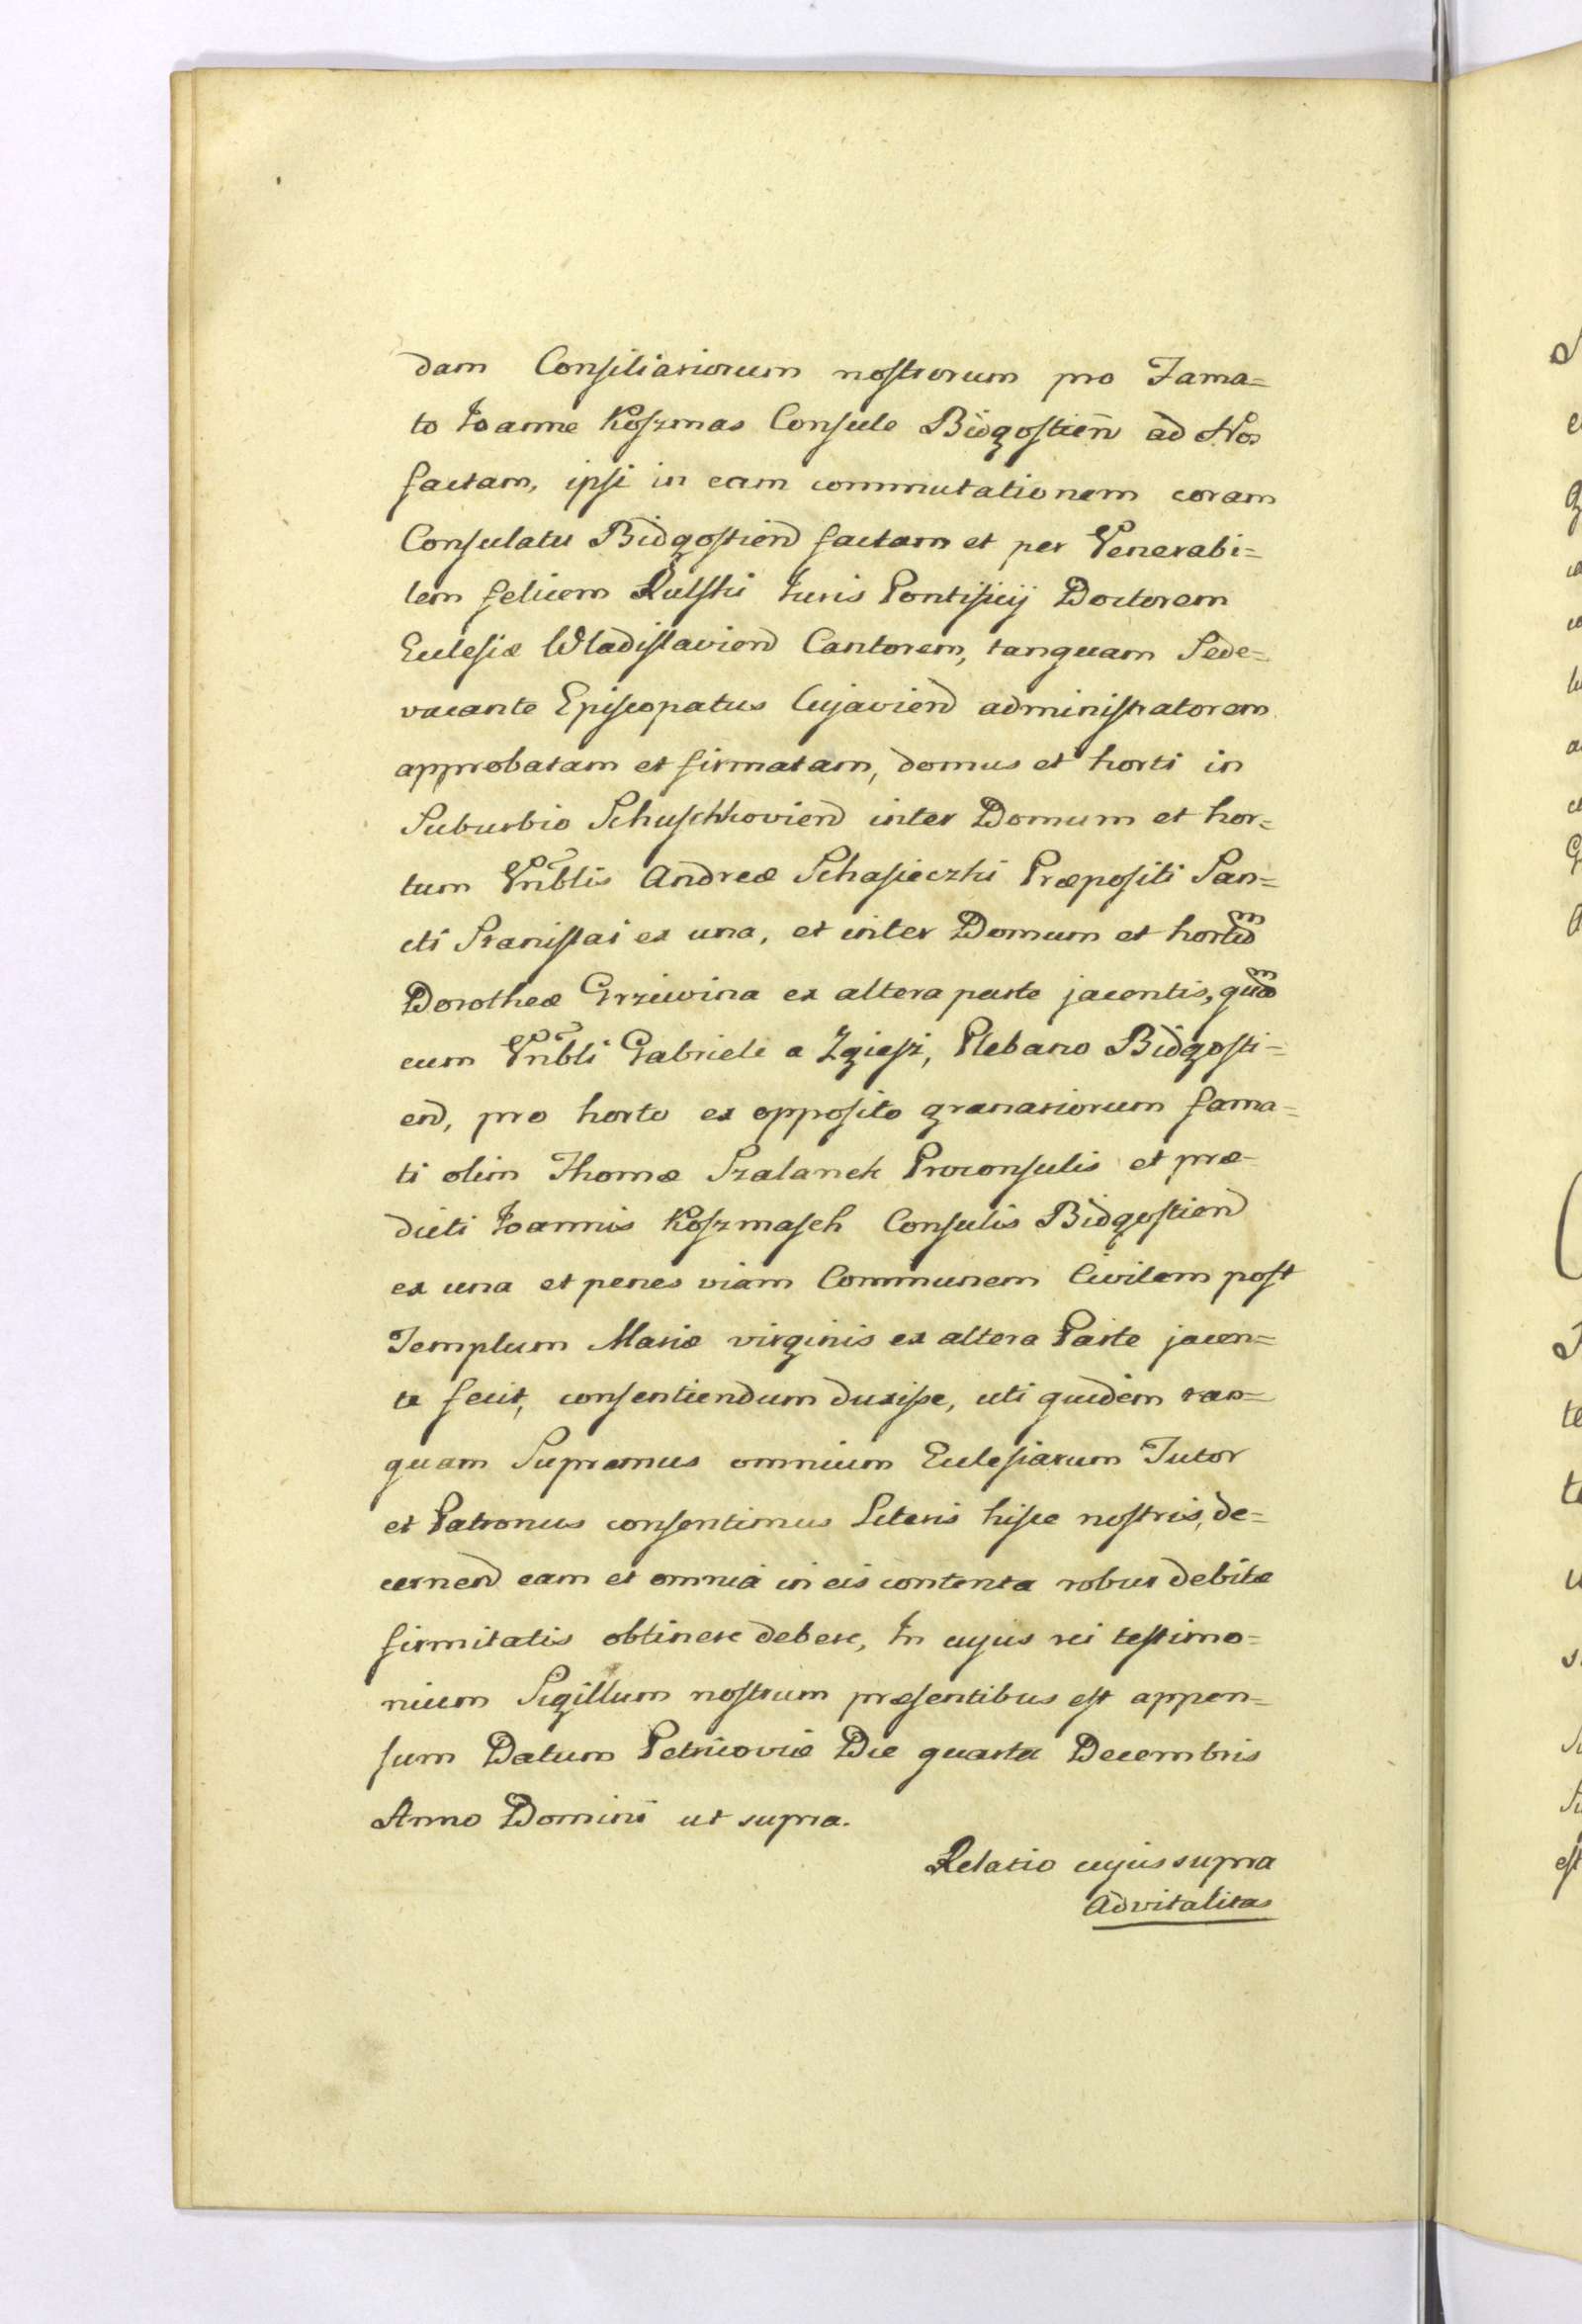 dam Consiliariorum nostrorum pro Fama=
to Ioanne Koszmas Consule Bidgostien̄ ad Nos
factam, ipsi in eam commutationem coram
Consulatu Bidgostien̄ factam et per Venerabi=
lem felicem Rulski Iuris Pontificij Doctorem
Ecclesiæ Wladislavien̄ Cantorem, tanquam Sede=
vacante Episcopatus Cujavien̄ administratorem
approbatam et firmatam, domus et horti in
Suburbio Schuschkovien̄ inter Domum et hor=
tum Vn̄blis Andreæ Schasieczki Præpositi San=
cti Stanislai ex una, et inter Domum et hortum
Dorotheæ Grziwina ex altera parte jacentis, quam
cum Vn̄bli Gabriele a Zgiesz, Plebano Bidgosti=
en̄, pro horto ex opposito granariorum fama=
ti olim Thomæ Szalanek Proconsulis et præ=
dicti Ioannis Koszmasch Consulis Bidgostien̄
ex una et penes viam Communem Civilem post
Templum Mariæ virginis ex altera Parte jacen=
te fecit, consentiendum duxisse, uti quidem tan=
quam Supremus omnium Ecclesiarum Tutor
et Patronus consentimus Literis hisce nostris, de=
cernen̄ eam et omnia in eis contenta robur debitæ
firmitatis obtinere debere, In cujus rei testimo=
nium Sigillum nostrum præsentibus est appen=
sum Datum Petricoviæ Die quarta Decembris
Anno Domini ut supra.
Relatio cujus supra
Advitalitas